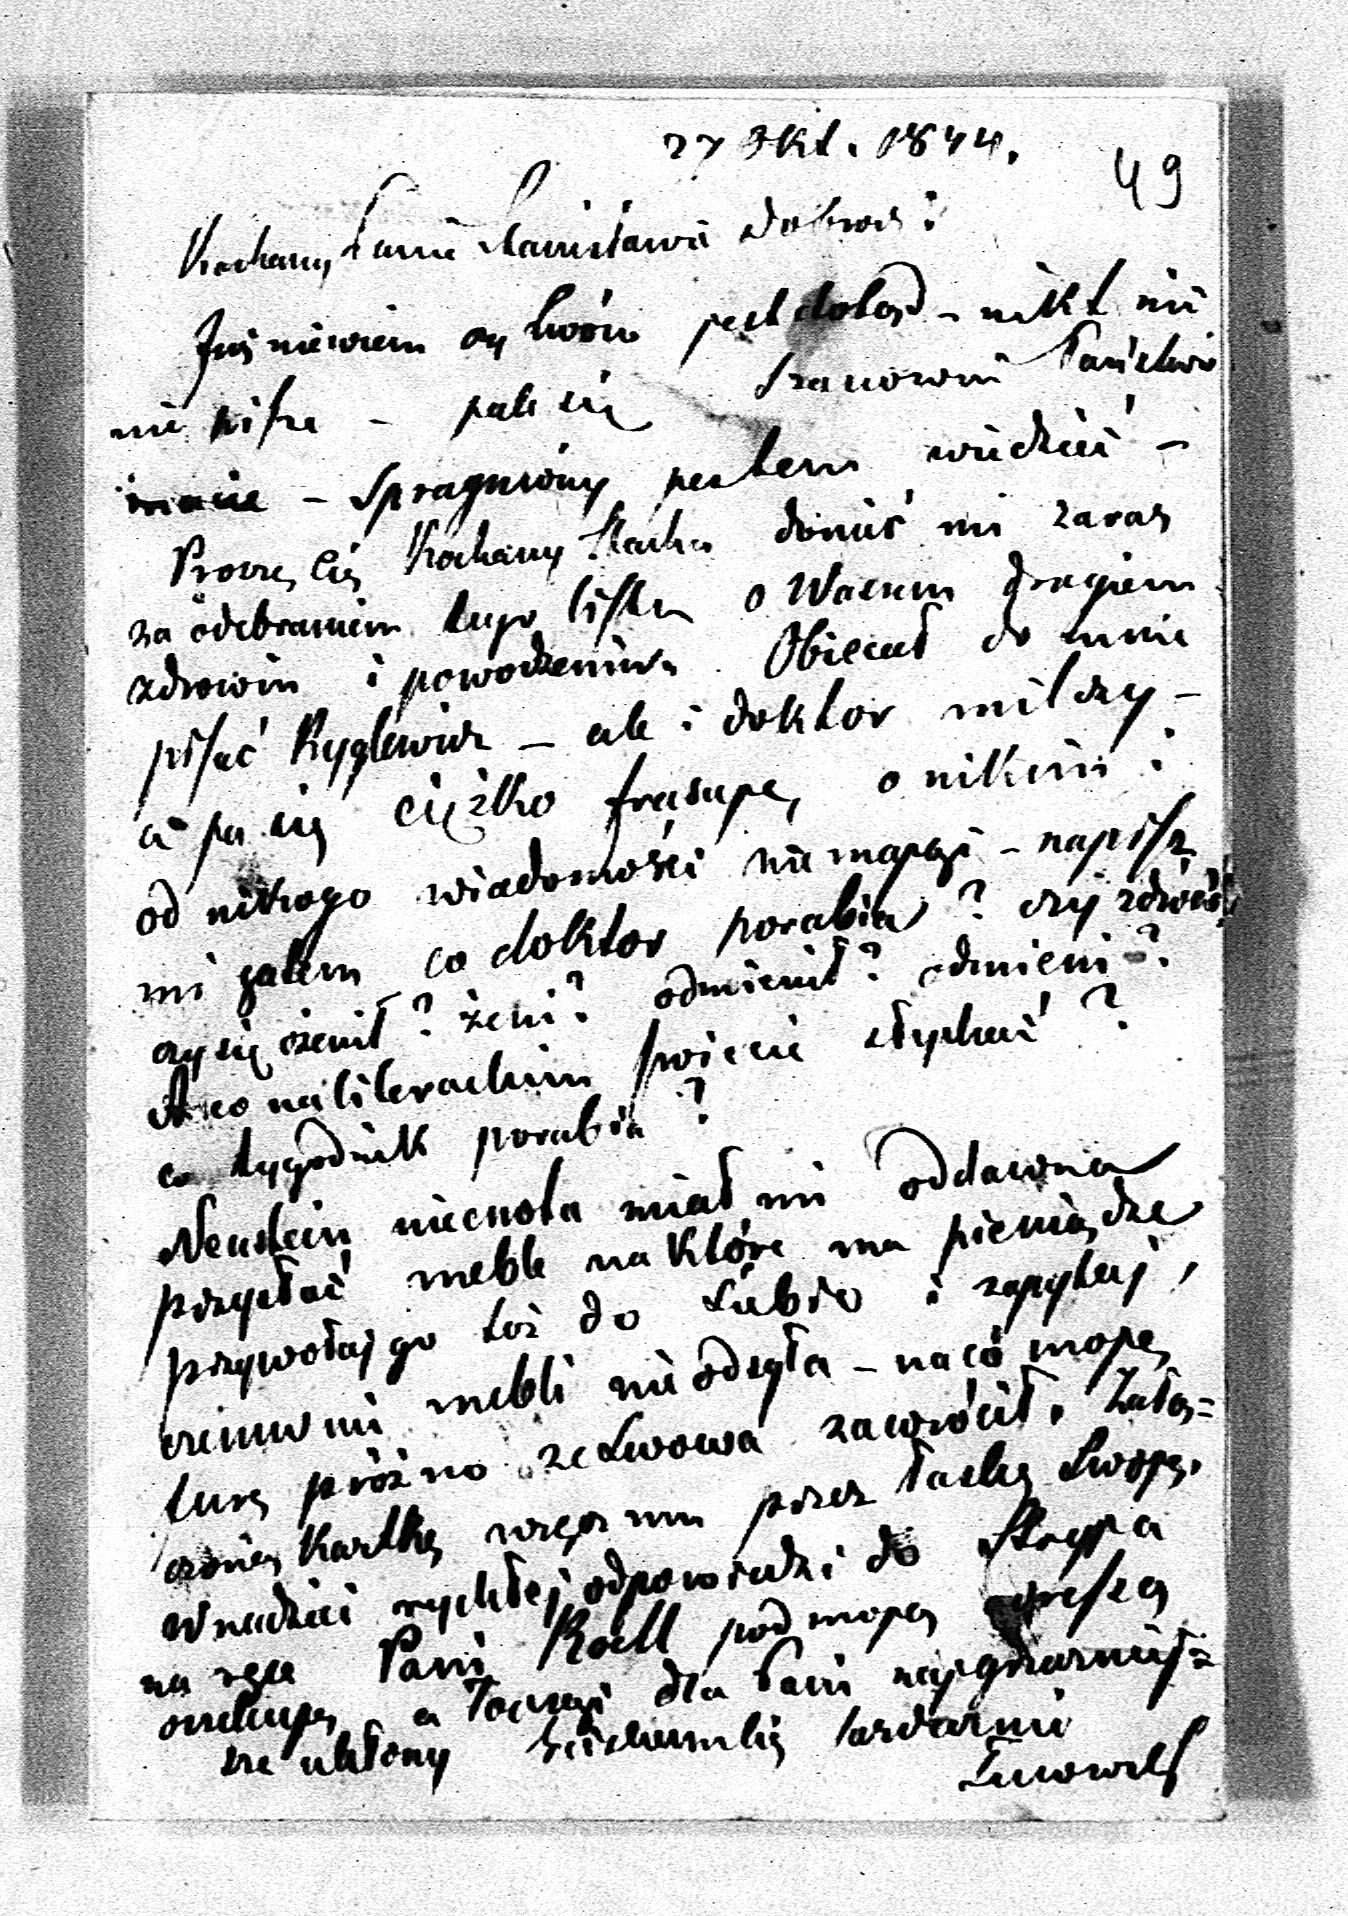 27 8kt. 1844.
49
Kochany Panie Stanisławie Dobrodz:
Już niewiem czy Lwów jest dotąd – nikt nic
nie pisze – jak się Szanowni Państwo
macie – Spragniony jestem wiedzieć –
Proszę Cię Kochany Stachu donieś mi zaraz
za odebraniem tego listu o Waszem drogiem
zdrowiu i powodzeniu. Obiecał do mnie
pisać Ryglewicz – ale i doktor milczy –
a ja się ciężko frasuję, o nikim i
od nikogo wiadomości nie mając – napisz
mi zatem co doktor porabia? czy zdrów?
czy się ożenił? żeni? odmienił? odmieni?
A co na literackim świecie słychać?
co tygodnik porabia?
Neustein niecnota miał mi oddawna
przysłać meble na które ma pieniądze
przywołaj go też do siebie i zapytaj,
czemu mi mebli nie odsyła – na co moje
próżno ze Lwowa zawrócił. Załą=
czoną Kartkę wręcz mu przez łaskę Swoję.
W nadziei rychłej odpowiedzi do Stryja
na ręce Pani Koell pod moją adresą
oczekuję, a łącząc dla Pani najgrzeczniej=
sze ukłony ściskam Cię serdecznie